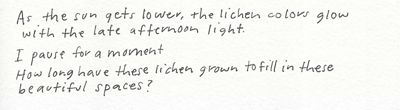 As the sun gets lower, the lichen colors glow
with the late afternoon light.
I pause for a moment
How long have these lichen grown to fill in these
beautiful spaces?